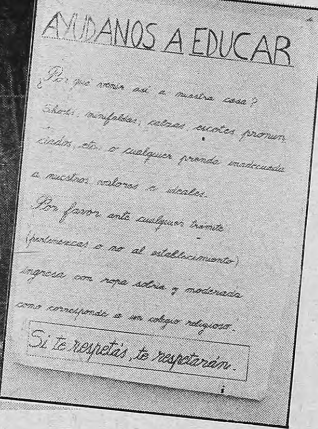 AYUDANOS A EDUCAR
¿Por que venir así a nuestra casa?
Shorts, minifaldas, calzas, escotes pronun
ciados, etc. o cualquier prenda inadecuada
a nuestros valores e ideales.
Por favor ante cualquier trámite
(pertenezcas o no al establecimiento)
ingresa con ropa sobria y moderada
como corresponde a un colegio religioso.
Si te respetás, te respetarán.